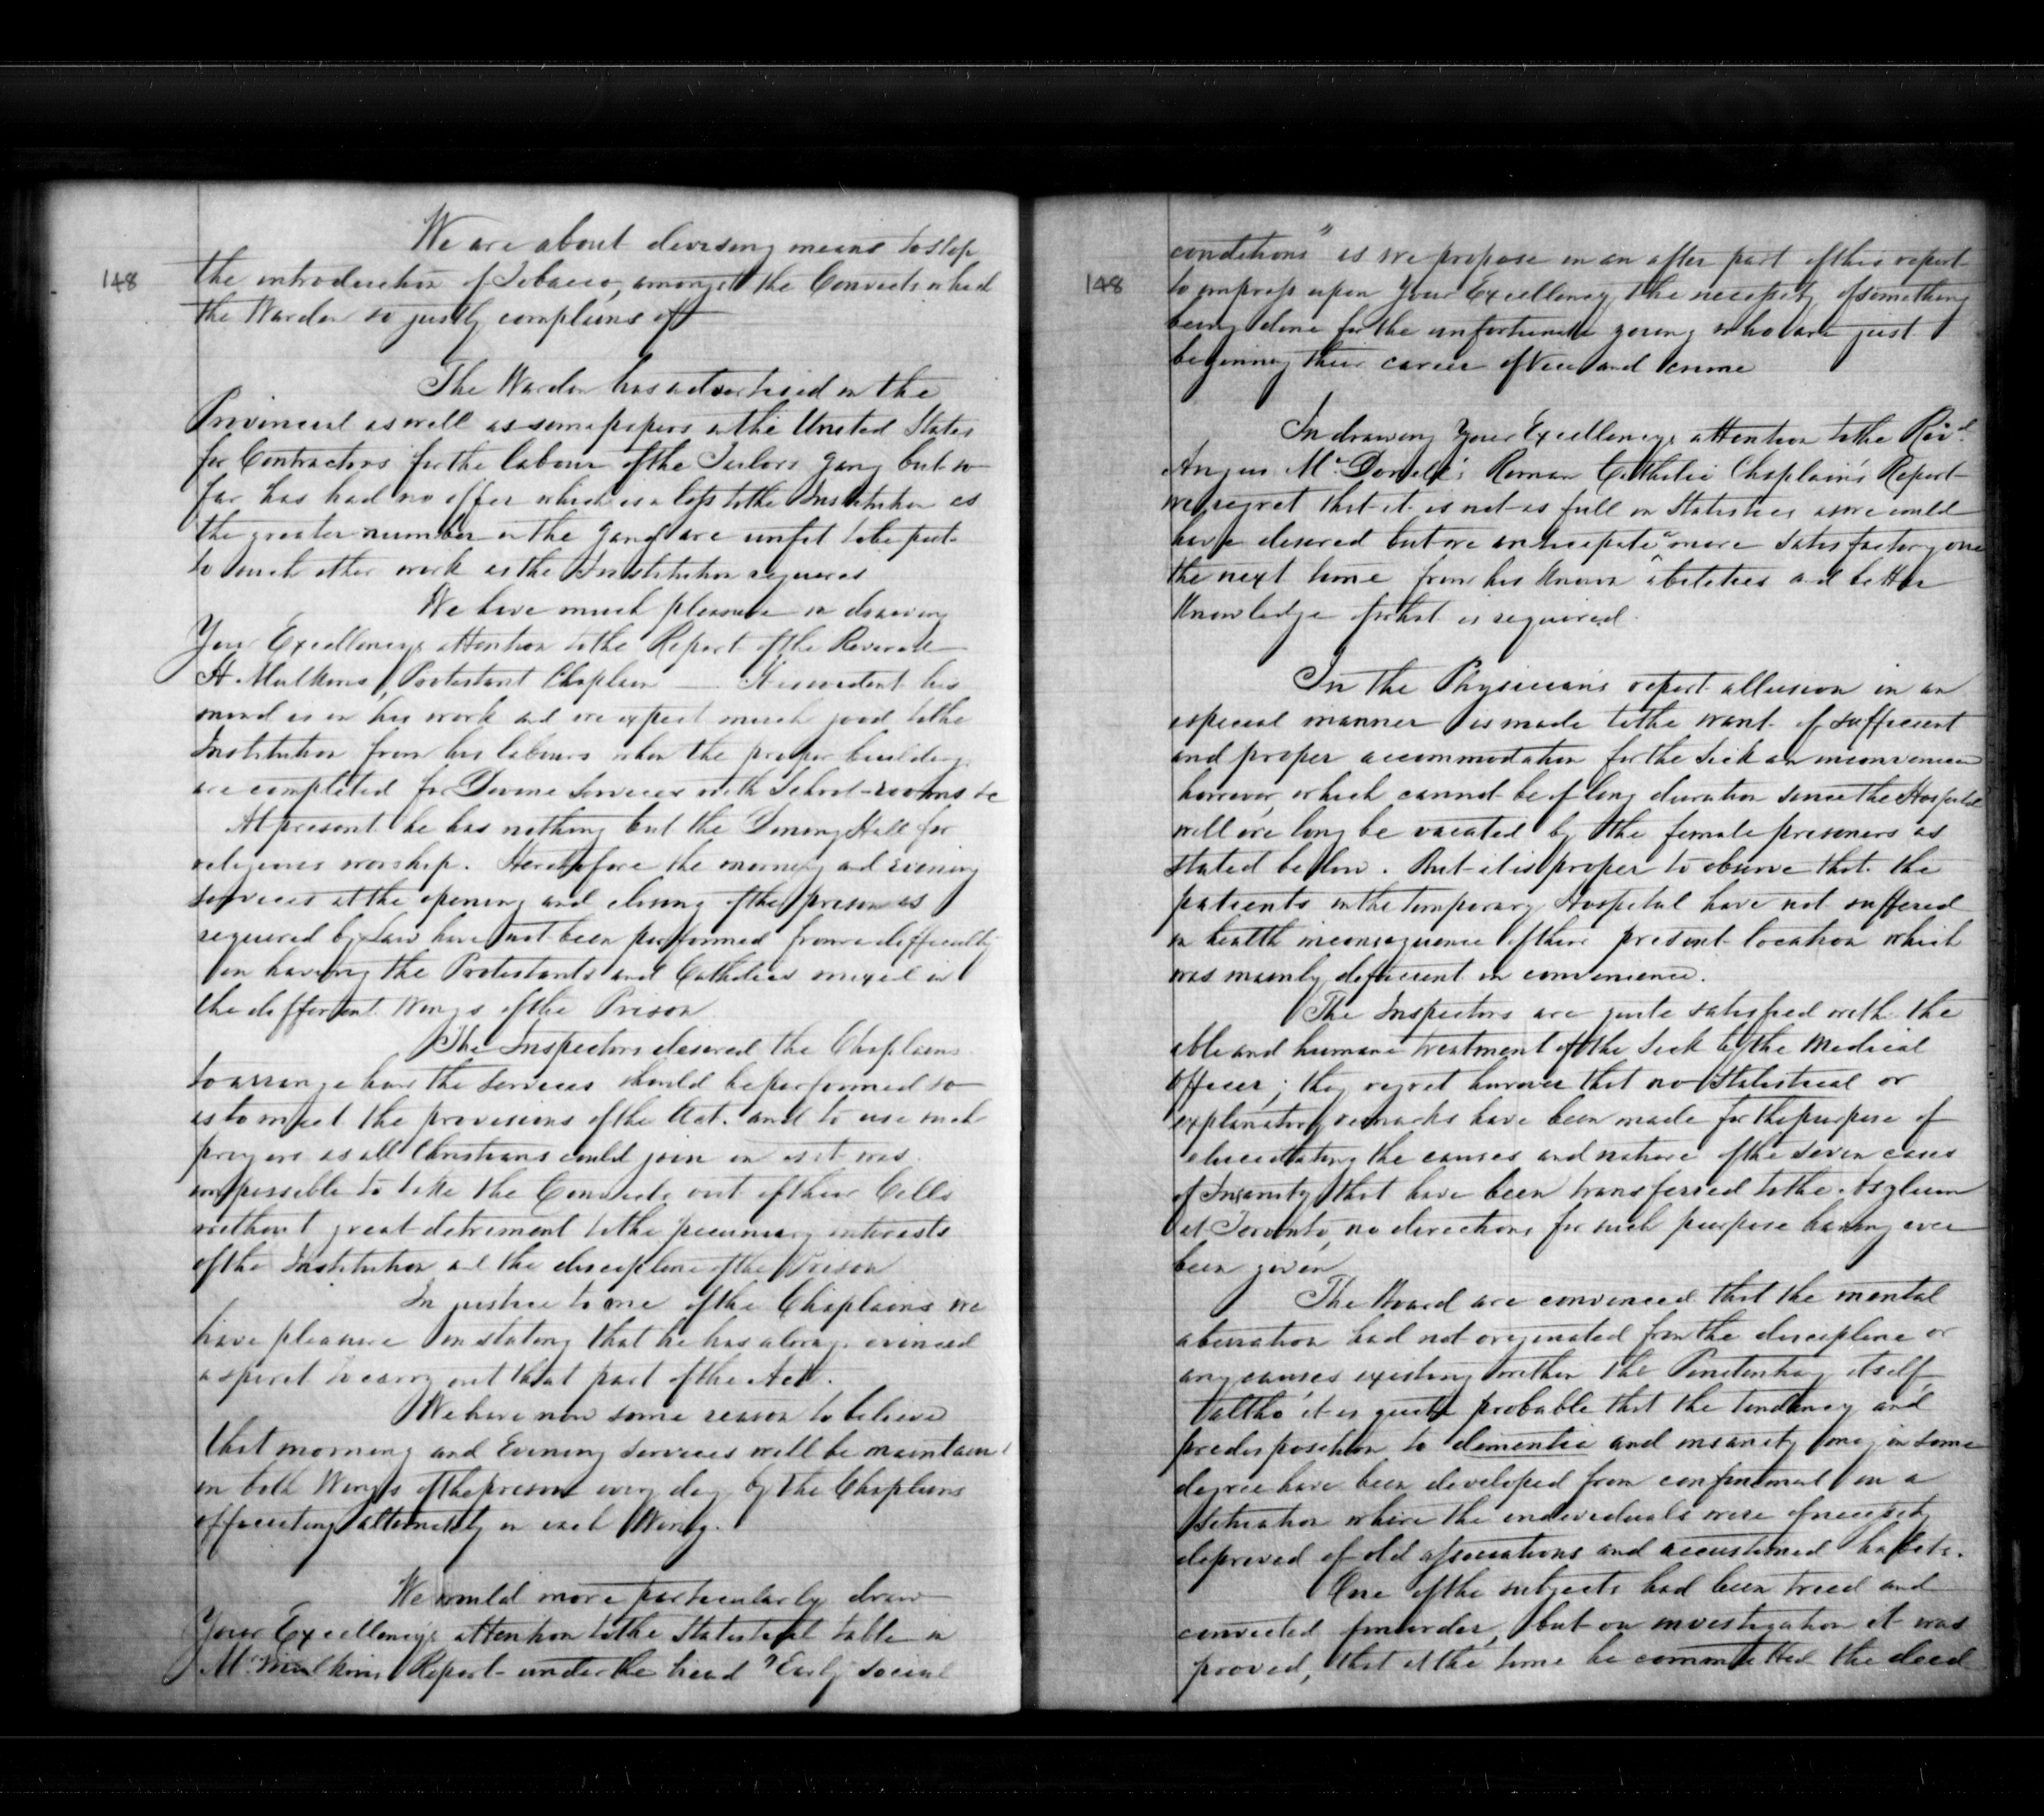 148
We are about devising means to stop
the introduction of Tobacco, amongst the Convicts which
the Warden so justly complains of
The Warden has advertised in the
Provincial as well as some papers in the United States
for Contractors for the labour of the Tailors gang but so
far has had no offer which is a loss to the Institution as
the greater number in the gang are unfit to be put
to such other work as the Institution requires
We have much pleasure in drawing
Your Excellencys attention to the Report of the Reverend
H. Mulkins, Protestant Chaplain — It is evident his
mind is in his work and we expect much good to the
Institution from his labours when the proper buildings
are completed for Divine Services with School-rooms &c
At present he has nothing but the Dining Hall for
religious worship. Heretofore the morning and evening
services at the opening and closing of the prison as
required by Law have not been performed from a difficulty
in having the Protestants and Catholics mixed in
the different Wings of the Prison
The Inspectors desired the Chaplains
to arrange how the services should be performed so
as to meet the provisions of the Act. and to use such
prayers as all Christians could join in as it was
impossible to take the Convicts out of their Cells
without great detriment to the pecuniary interests
of the Institution and the discipline of the Prison
In justice to one of the Chaplains we
have pleasure in stating that he has always evinced
a spirit to carry out that part of the Act.
We have now some reason to believe
that morning and Evening services will be maintained
in both Wings of the prison every day by the Chaplains
officiating alternately in each Wing.
We would more particularly draw
Your Excellency's attention to the Statistical table in
Mr. Mulkins Report under the head "Early social
148
conditions" as we propose in an after part of this report
to impress upon Your Excellency the necessity of something
being done for the unfortunate young who are just
beginning their career of Vice and crime
In drawing Your Excellencys attention to the Revd.
Angus McDonell's Roman Catholic Chaplain's Report
we regret that it is not as full in Statistics as we could
have desired but we anticipate a more satisfactory one
the next time from his known abilities and better
Knowledge of what is required.
In the Physician's report allusion in an
especial manner is made to the want of sufficient
and proper accommodation for the Sick an inconvenience
however, which cannot be of long duration since the Hospital
will ere long be vacated by the female prisoners as
stated below. But it is proper to observe that the
patients in the temporary Hospital have not suffered
in health in consequence of their present location which
was mainly deficient in convenience.
The Inspectors are quite satisfied with the
able and humane treatment of the Sick by the Medical
officer; they regret however that no Statistical or
explanatory remarks have been made for the purpose of
elucidating the causes and nature of the seven cases
of Insanity that have been transferred to the Asylum
at Toronto, no directions for such purpose having ever
been given
The Board are convinced that the mental
aberration had not originated from the discipline or
any causes existing within the Penitentiary itself,
altho' it is quite probable that the tendency and
predisposition to dementia and insanity may in some
degree have been developed from confinement in a
situation where the individuals were of necessity
deprived of old associations and accustomed habits.
One of the subjects had been tried and
convicted for murder, but on investigation it was
proved, that at the time he committed the deed